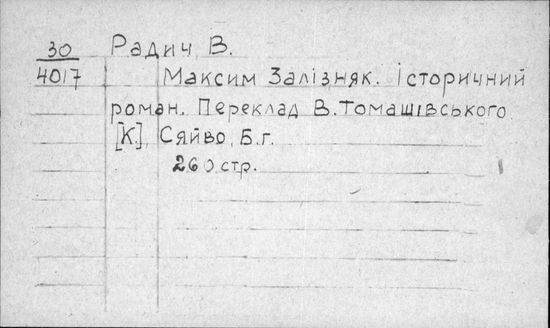 30 Радич, В.
4017 Максим Залізняк. Історичний
роман. Переклад В. Томашівського
[К.], Сяйво, Б.г.
260 стр.